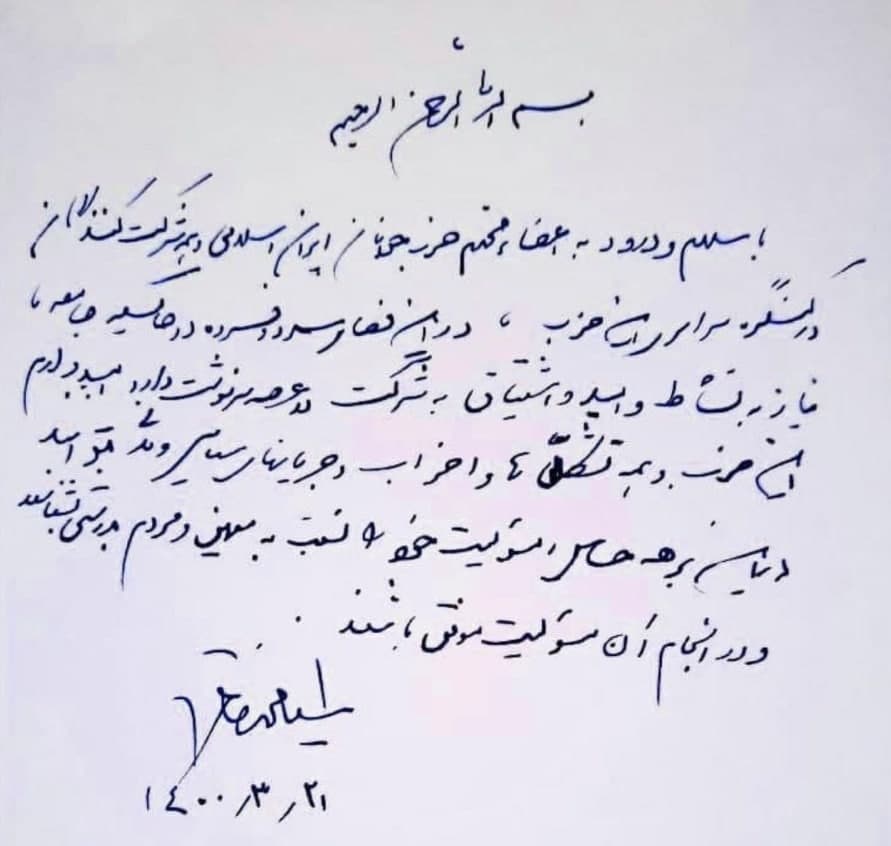 بسم الله الرحمن الرحیم
با سلام و درود به اعضاء محترم حزب جوانان ایران اسلامی و همه شرکت کنندگان
در کنگره سراسری این حزب ، در این فضای سرد و افسرده در حاکمیت جامعه ،
نیاز به نشاط و امید و اشتیاق به شرکت در عرصه سرنوشت دارد امیدوارم
این حزب و همه تشکل ها و احزاب و جریانهای سیاسی و
در این برهه حساس مسؤلیت خود را نسبت به میهن و مردم بدرستی بشناسند
و در انجام آن مسؤلیت موفق باشند
سید محمد خاتمی
۱۴۰۰/۳/۲۱